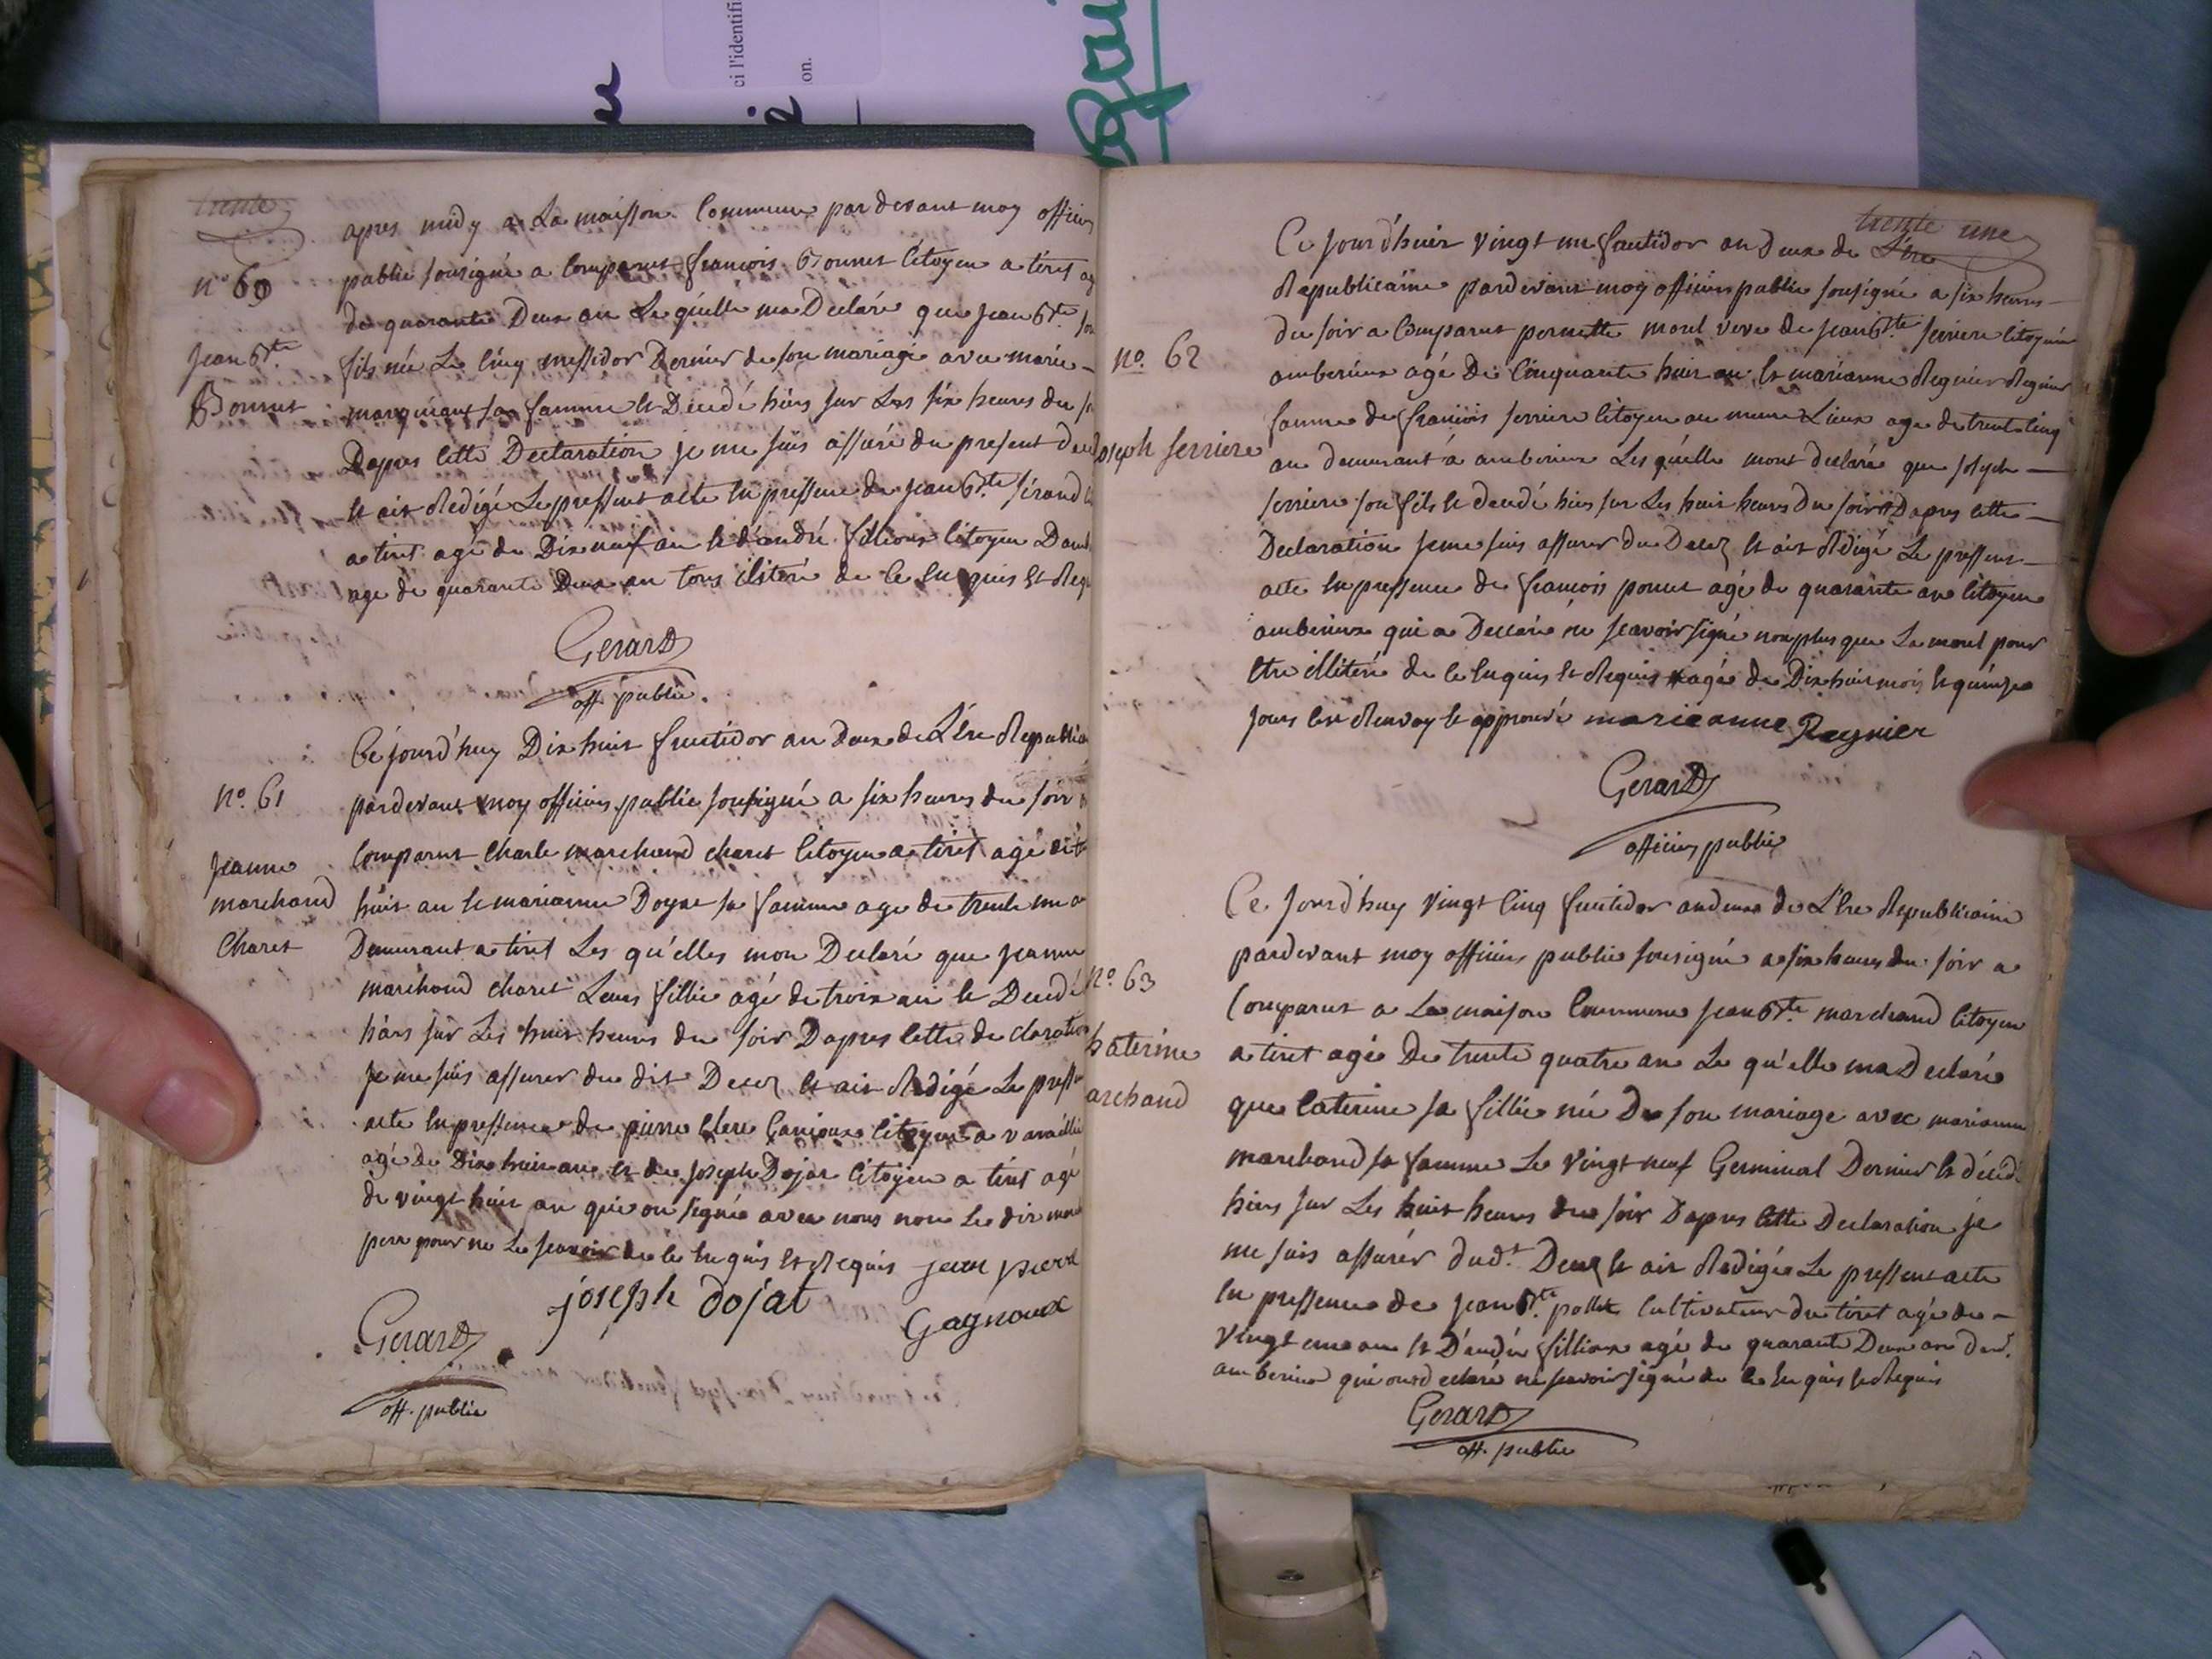 trente
apres midy a La maisson Commune par devant moy officier
n° 60
public sousigné a Comparut francois Bonnet Citoyen a tiret
de quarante Deux an Le qu'elle ma Declaré que jean Bte son
jean Bte
Bonnet
fils née Le Cinq messidor Dernier de son mariage avec marie
sa famme et Decedé hiers sur Les six heures du
Dapres Cette Declaration je me suis assuré du present
et ait Redigé Le pressent acte En pressence de jean Bte
a tiret agé de Dix neuf an et d'andré fillioux Citoyen
age de quarante Deux an tous iliteré de Ce Enquis Et
Gerard
off. public.
Ce jourd'huy Dix huit fructidor an Deux de L'Ere
n°. 61
pardevant moy officier public sousigné a six heures du soir
jeanne
marchand
Charet
Comparut Charle marchand charet Citoyen a tiret agé
huit an et marianne Doyat sa famme age de trente un
Demeurant a tiret Les qu'elles mon Declaré que jeanne
marchand charet Leurs fillie agé de trois an et Decedé
hiers sur Les huit heures du soir Dapres Cette declaration
je me suis assurer du dit Decez et ait Redigé Le
acte En pressence de pierre Citoyen a
agé de Dix huit ans et de joseph Dojat Citoyen a tiret agé
de vingt huit an qui on signée avec nous non Le dit
pere pour ne Le scavoir de Ce Enquis et Requis jean pierre
joseph dojat
Gagnoux
Gerard
off. public
trente une
Ce jourd'huis vingt un fructidor an deux de L'Ere
Republicaine pardevant moy officier public sousigné a six heures
n°. 62
du soir a Comparut pernette morel veve de jean Bte serriere Citoyenne
amberieux agé De Cinquante huit an et marianne Regnier
famme de francois serriere Citoyen au meme Lieux age de trente Cinq
oseph serriere
an demeurant á amberieux Les qu'elle mont declaré que joseph
serriere son fils et decedé hiers sur Les huit heures Du soir Dapres Cette
Declaration je me suis assurer du Decez Et ait Rédigé Le pressent
acte En pressence de francois ponnet agé de quarante ans Citoyen
amberieux qui a Declaré ne scavoir signé non plus que La morel pour
Etre illiteré de Ce Enquis et Requis agé de Dix huit mois et quinze
jours Les Renvoy et approuvé marieanne Reynier
Gerard
officier public
Ce jourd'huy vingt Cinq fructidor an deux de L'Ere Republicaine
pardevant moy officier public sousigné a six heures du soir a
n°. 63
Comparut a La maison Commune jean Bte marchand Citoyen
haterine
archand
a tiret agée De trente quatre an Le qu'elle ma Declaré
que Caterine sa fillie née De son mariage avec marianne
marchand sa famme Le vingt neuf Germinal Dernier et décedé
hiers sur Les huit heures du soir Dapres Cette Declaration je
me suis assurér dudt. Decez et ait Redigée Le pressent acte
En pressence de jean Bte pollet Cultivateur du tiret agé de
vingt une an et D'andré fillioux agé de quarante Deux an
amberieux qui ont declaré ne scavoir signé de Ce Enquis et Requis
Gerard
off. public